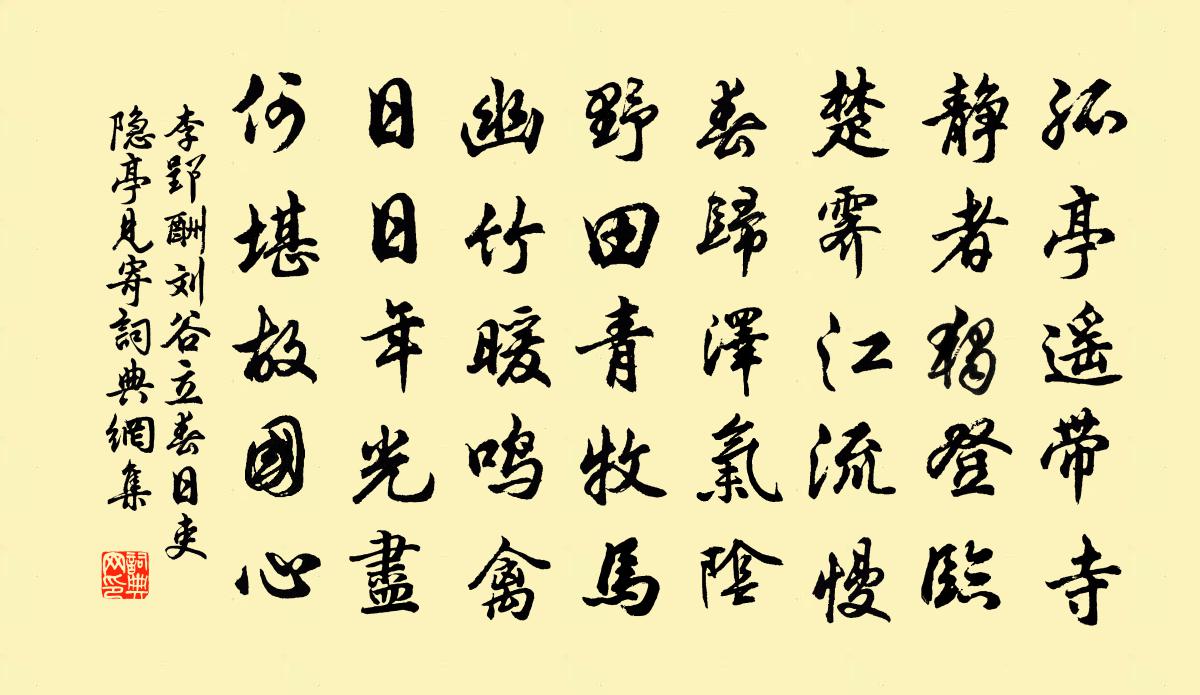 孤亭遥带寺
静者獨登臨
楚霁江流慢
春歸澤氣陰
野田青牧馬
幽竹暖鸣禽
日日年光盡
何堪故國心
李郢酬刘谷立春日吏
隐亭見寄詞典網集
詞典网印